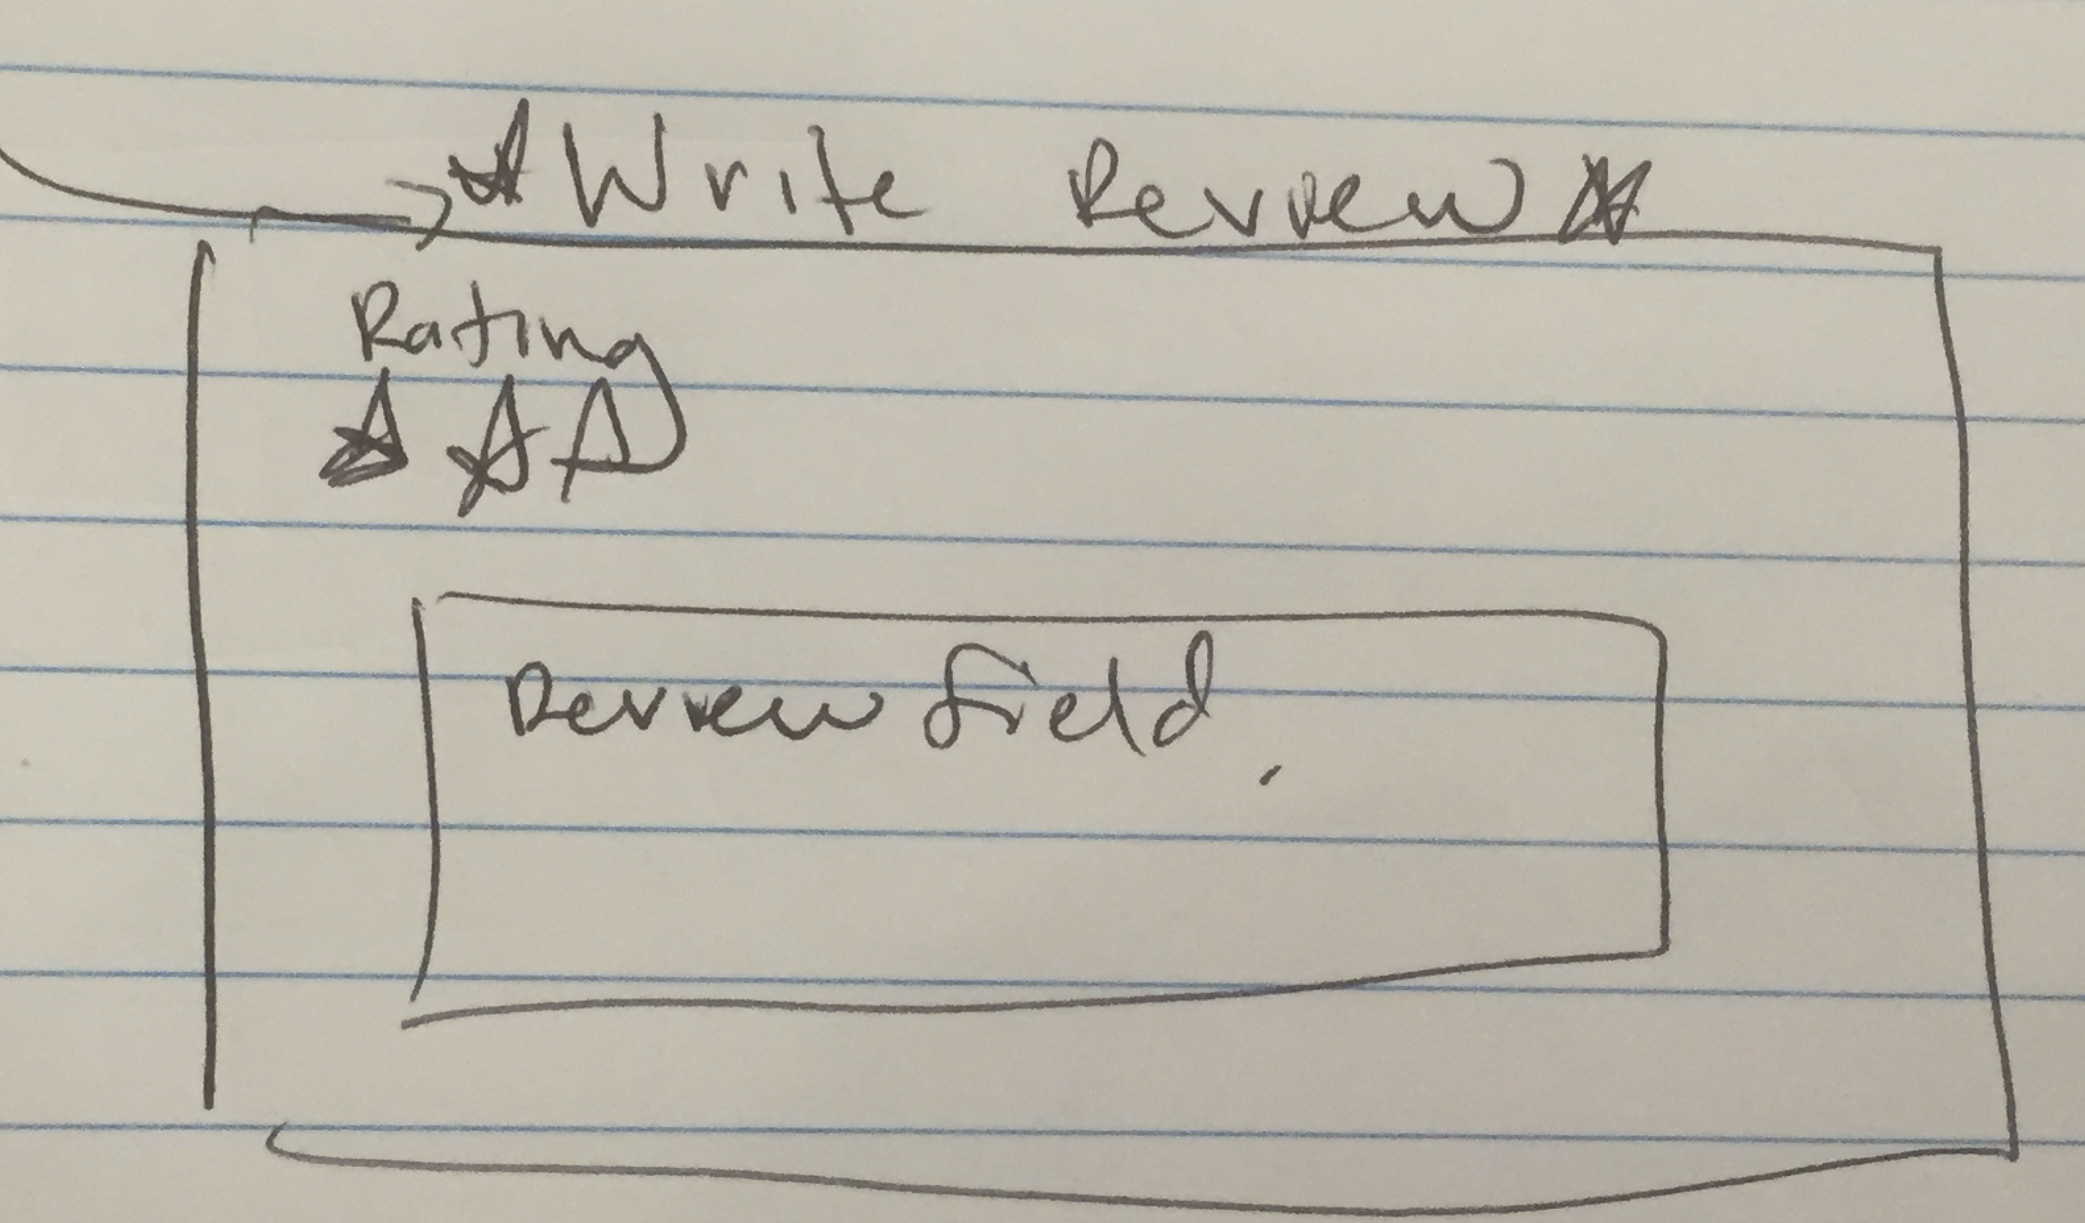 ★ Write Review ★
Rating
☆ ☆ ☆
Review field